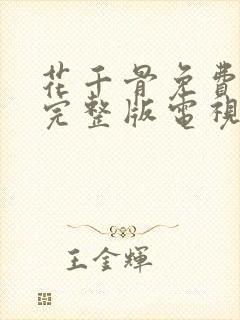 花千骨免費
完整版電視
王金輝